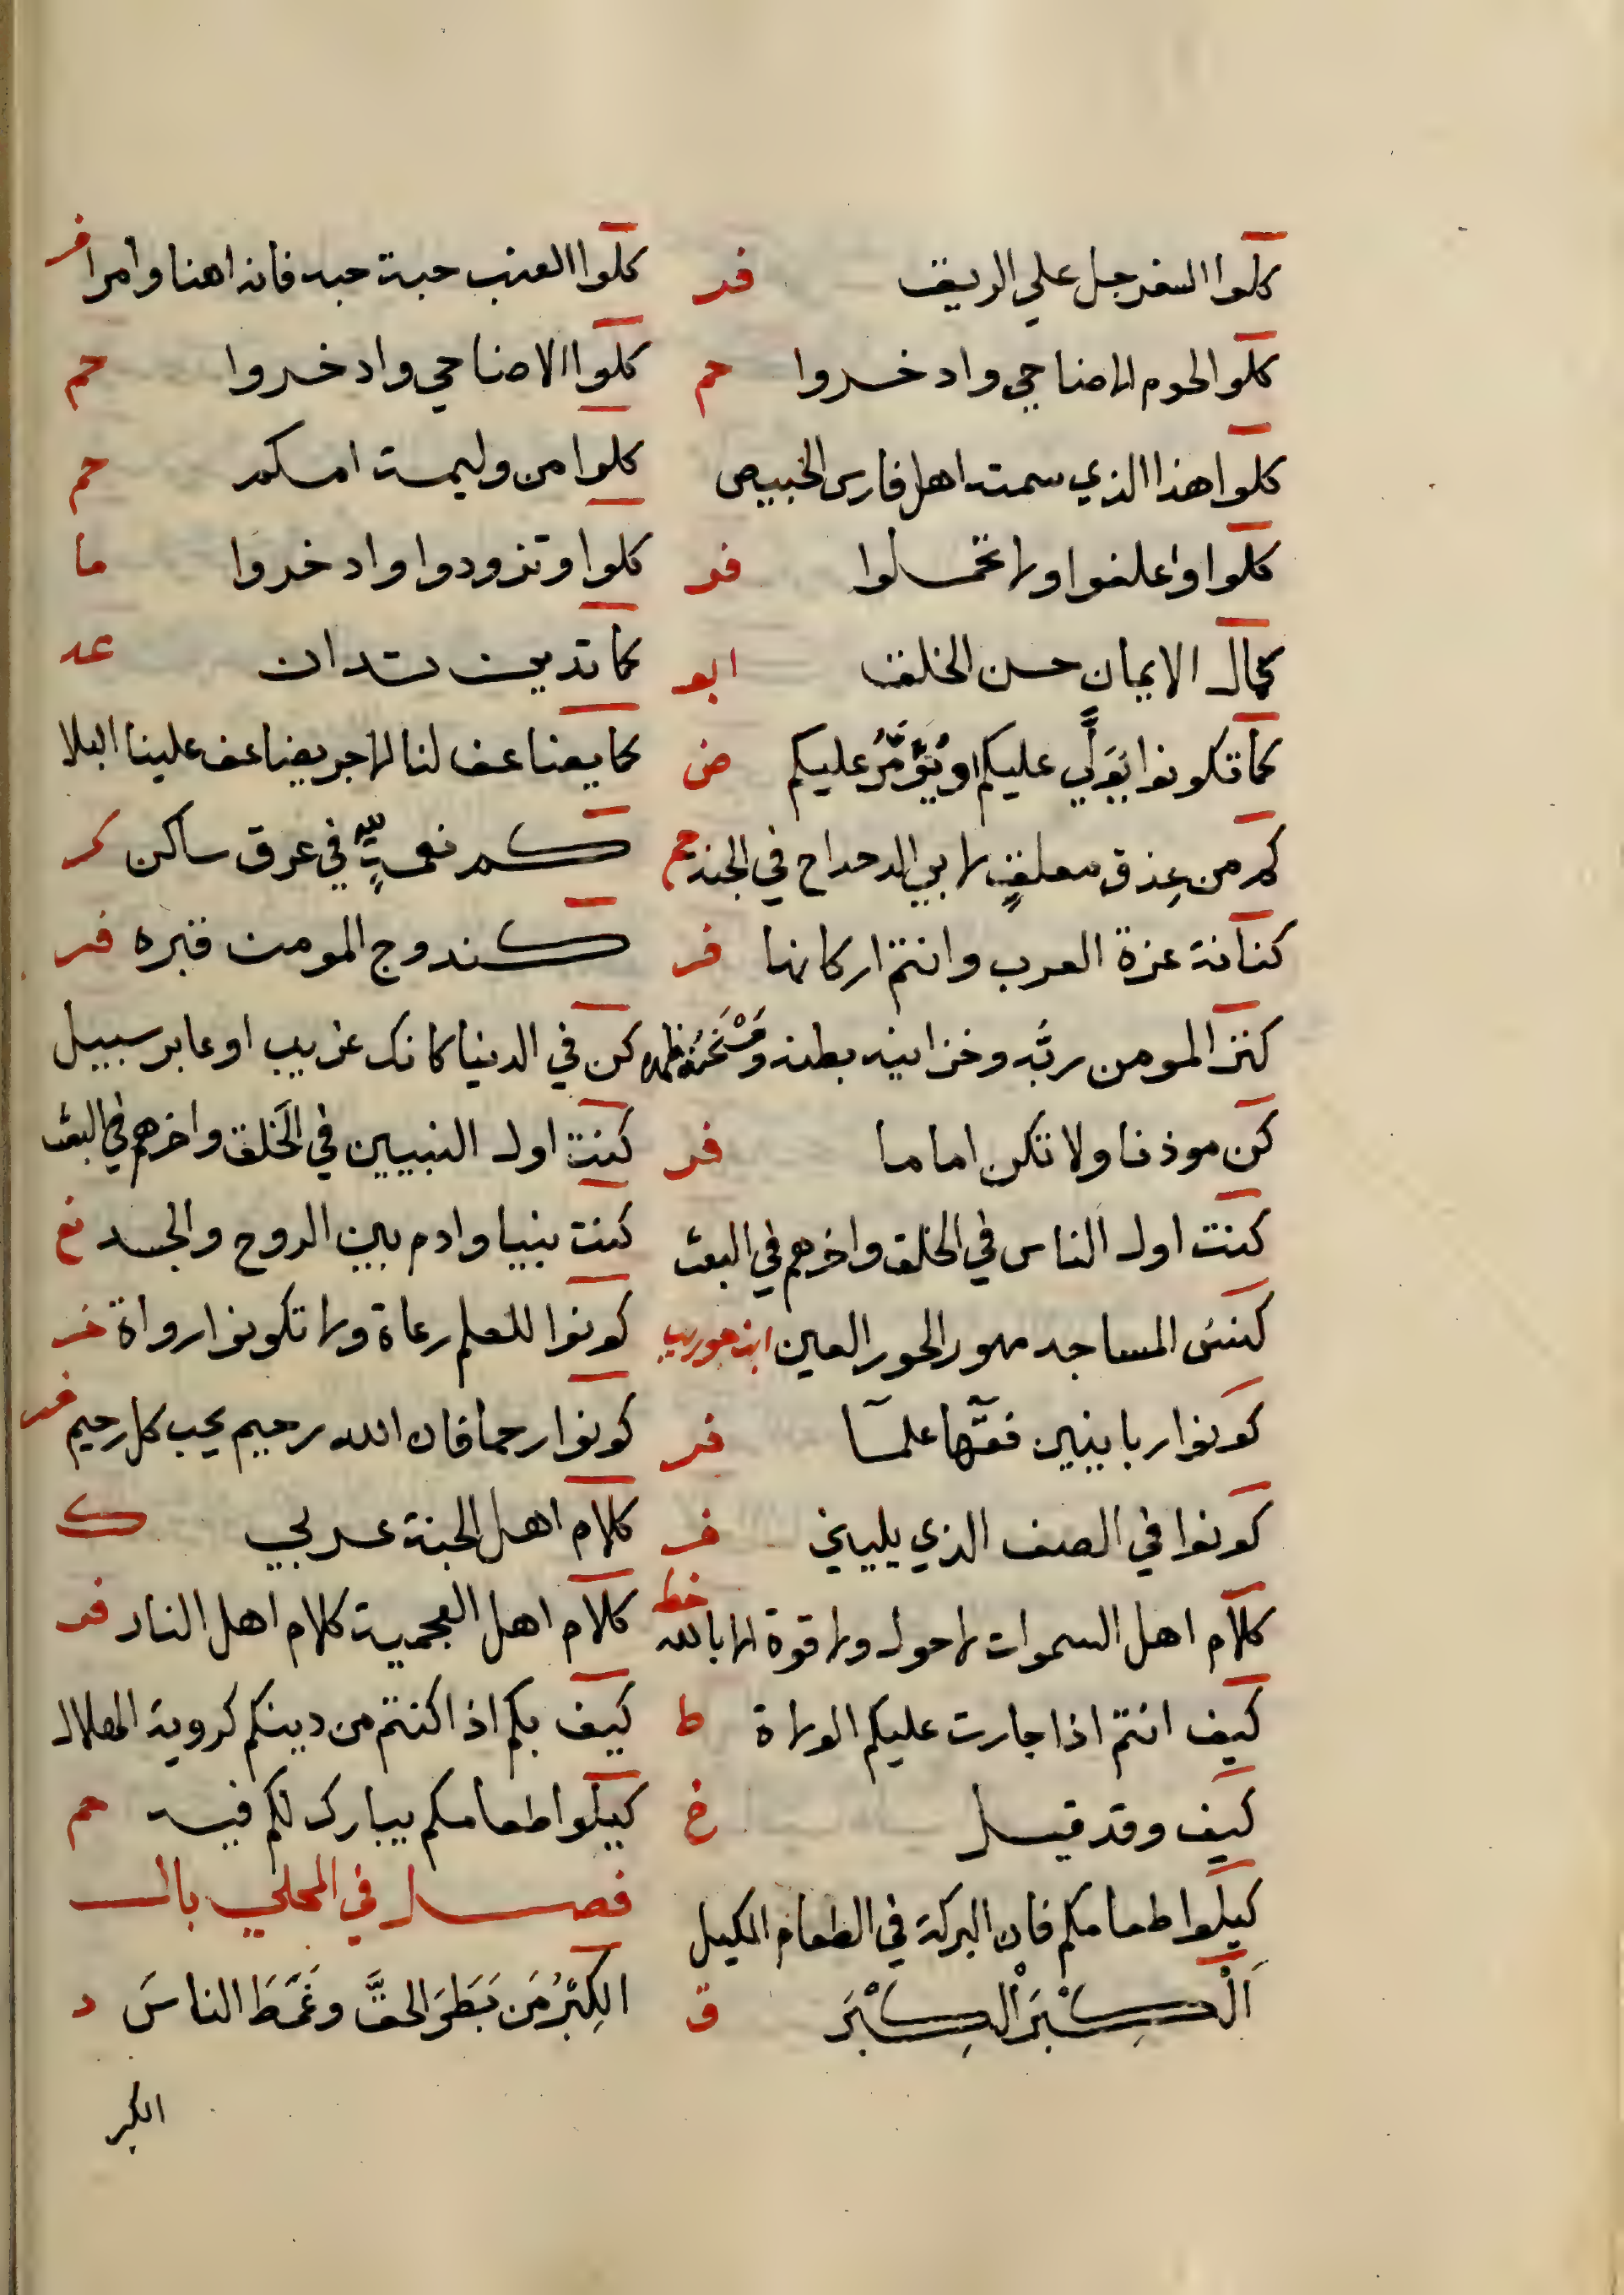 كلوا السفرجل علي الريق فر كلوا العنب حبة حبه فانه اهنا وامرا فر
كلوا لحوم الاضاحي وادخروا حم كلوا الاضاحي وادخروا حم
كلوا هذا الذي سمته اهل فارس الخبيص كلوا من وليمة امكم حم
كلوا واعلفوا ولا تحملوا فر كلوا وتزودوا وادخروا ما
كمال الايمان حسن الخلق ابو كما تدين تدان عد
كما تكونوا يُوَلَّي عليكم او يُؤَمَّرُ عليكم ض كما يضاعف لنا الاجر يضاعف علينا البلا
كم من عِذق معلقٍ لابي الدحداح في الجنة حم كم نعمةٍ لله في عرق ساكن كر
كنانة عزة العرب وانتم اركانها فر كندوج المومن قبره فر
كنز المومن ربَّه وخزانيه بطنه كن في الدنيا كانك غريب او عابر سبيل
كن موذنا ولا تكن اماما فر كنت اول النبيين في الخَلق واخرهم في البعث
كنت اول الناس في الخلق واخرهم في البعث كنت نبيا وادم بين الروح والجسد نع
كنس المساجد مهور الحور العين كونوا للعلم رعاة ولا تكونوا رواة فر
كونوا ربانيين فقها علما فر كونوا رحما فان الله رحيم يحب كل رحيم فر
كونوا في الصف الذي يليني فر كلام اهل الجنة عربي ك
كلام اهل السموات لا حول ولا قوة الا بالله خط كلام اهل العجمية كلام اهل النار فر
كيف انتم اذا جارت عليكم الولاة ط كيف بكم اذا كنتم من دينكم كروية الهلال
كيف وقد قيل خ كيلوا طعامكم يبارك لكم فيه حم
كيلوا طعامكم فان البركة في الطعام المكيل فصل في المحلي بال
اَلْكِبْرَ الْكِبْرَ ق الكِبْرُ مَن بَطَرَ الحقَّ وغَمَطَ الناسَ د
الكبر